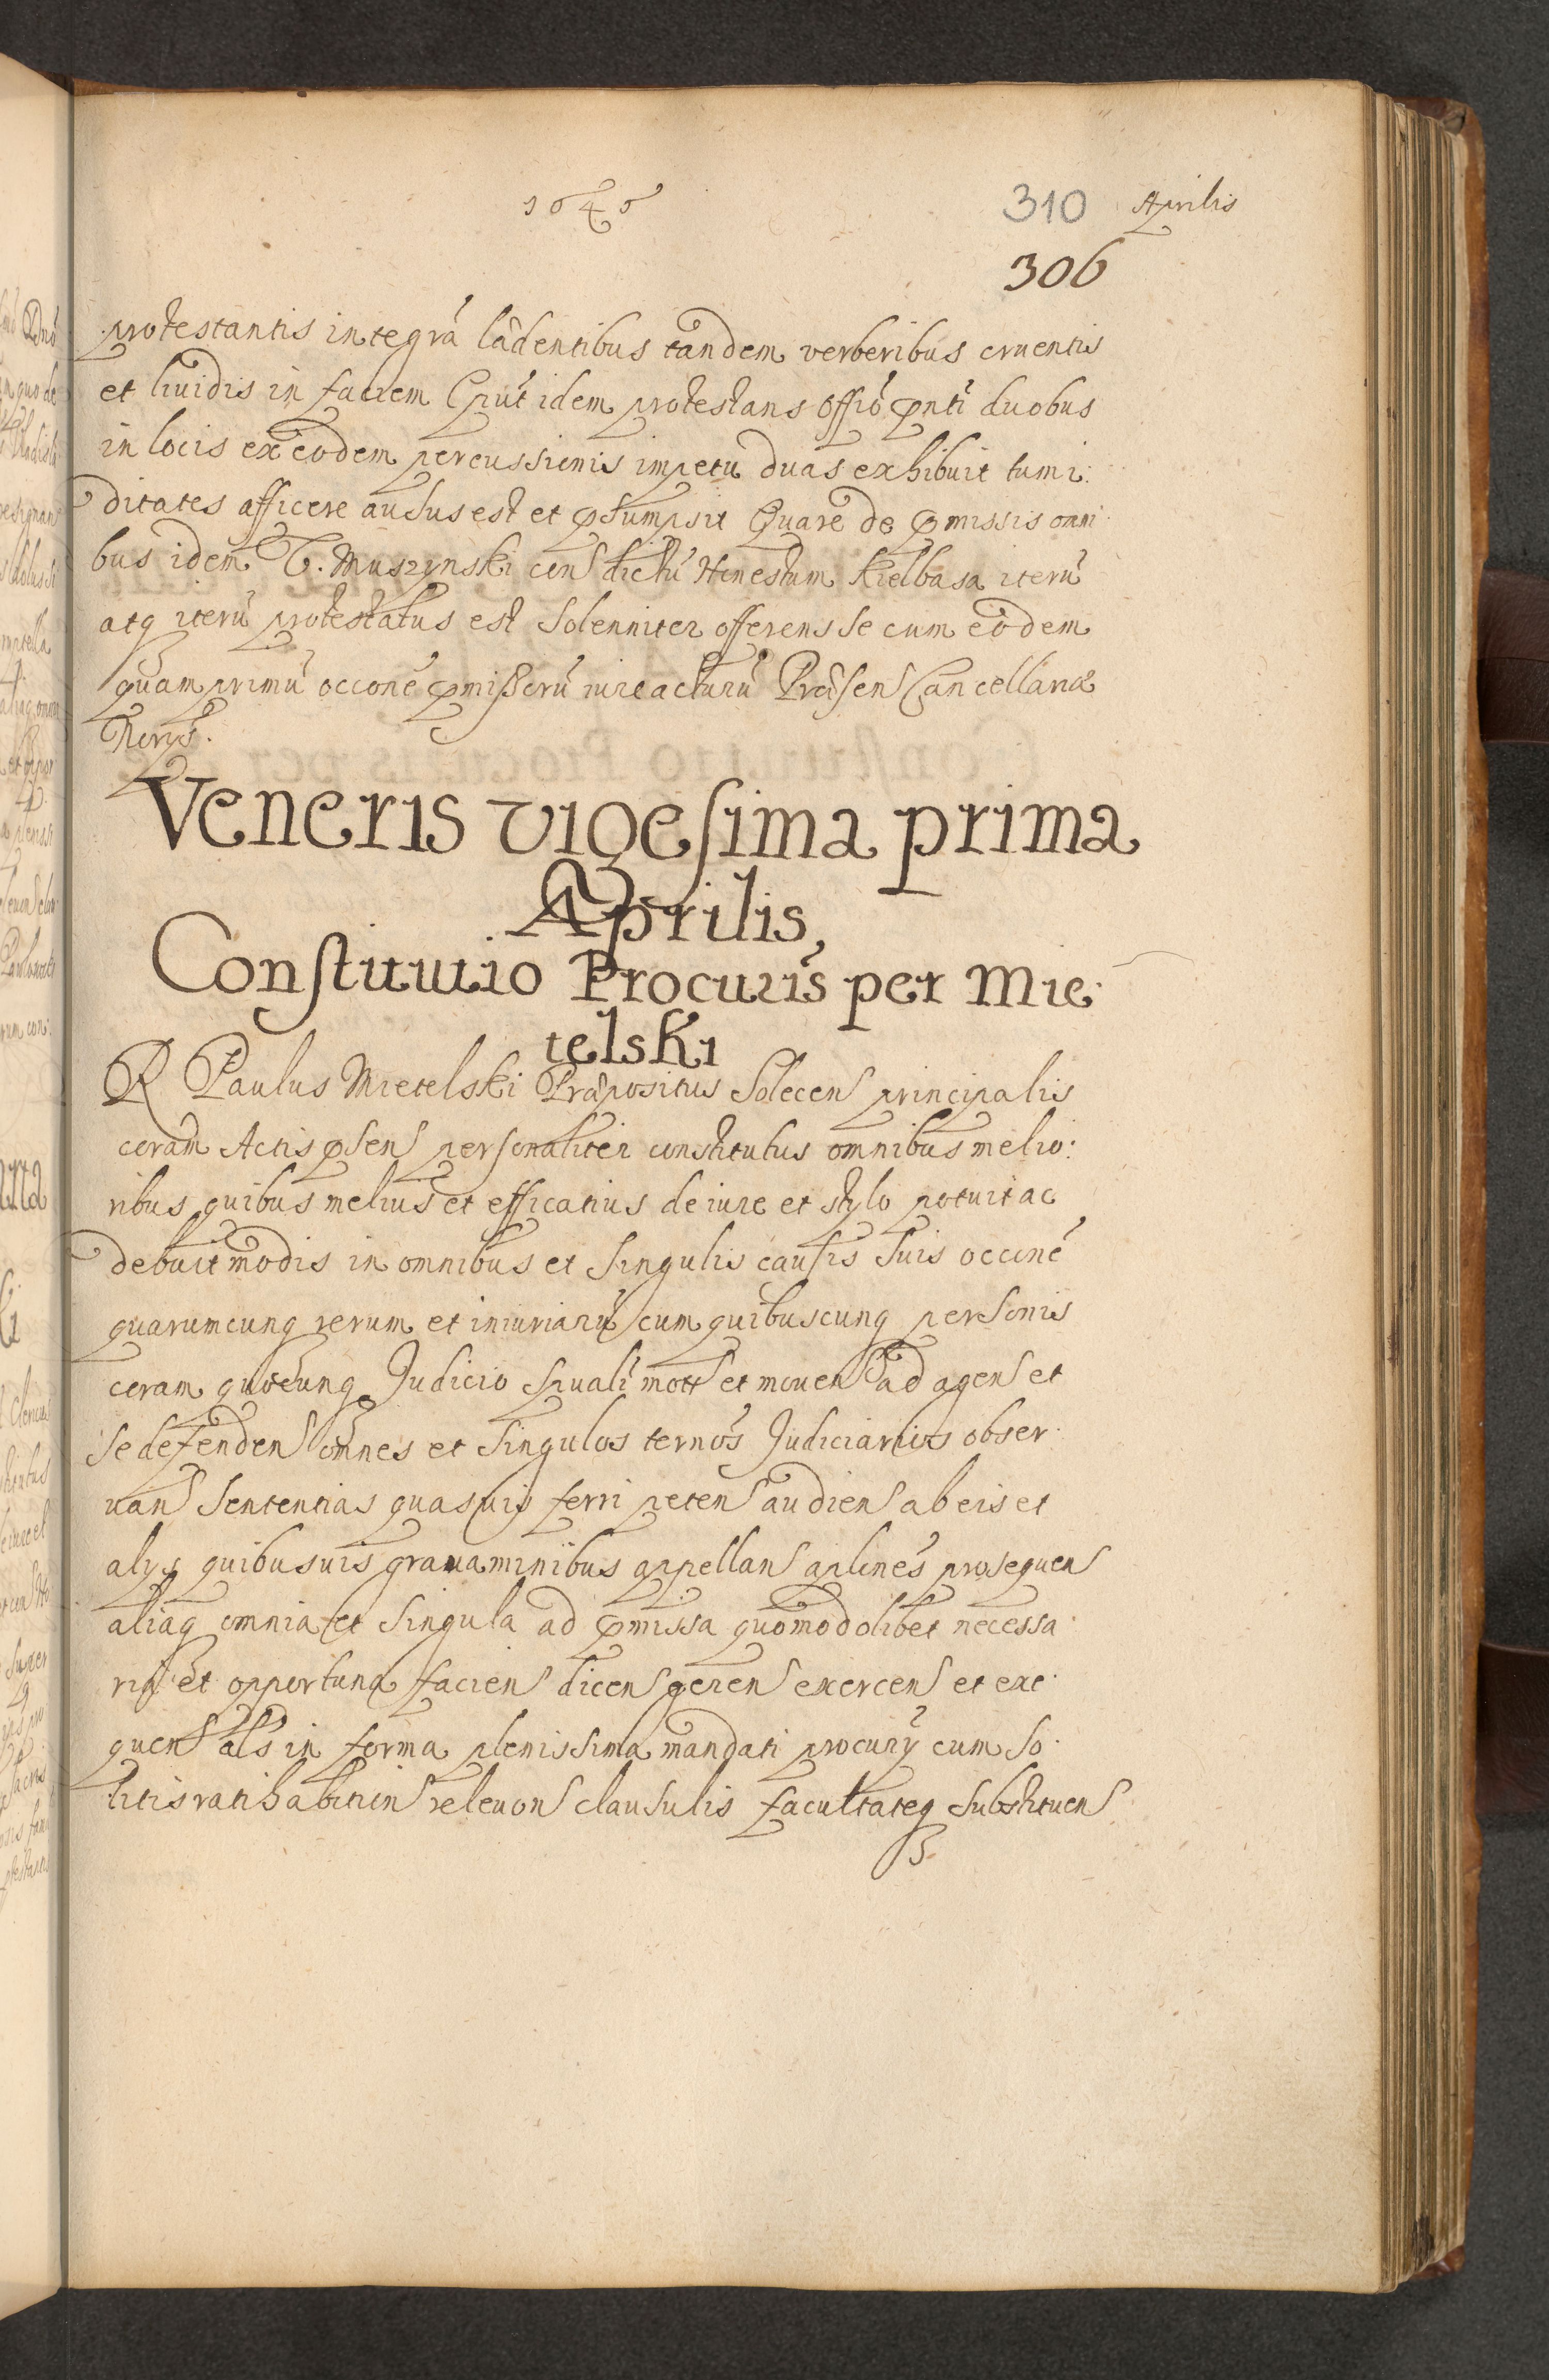 1645
310 Aprilis
306
protestantis integrã lædentibus tandem verberibus cruentis
et liuidis in faciem Cput idem protestans offiõ pnti duobus
in locis ex eodem percussionis impetu duas exhibuit tumi:
ditates afficere ausus est et psumpsit Quare de pmissis omni
bus idem G. Muszynski con dictũ Honestum Kielbasa iterũ
atq iterũ protestatus est Solenniter offerens se cum eodem
quam primũ occone pmissorũ iure acturũ Præsen Cancellariæ
Veneris vigesima prima
Aprilis,
Constitutio Procuris per Mie
telski
R Paulus Mietelski Præpositus Solecen principalis
coram Actis psen personaliter constitutus omnibus melio:
ribus quibus melius et efficatius de iure et stylo potuit ac
debuit modis in omnibus et singulis causis suis occone
quarumcunq rerum et iniuriarũ cum quibuscunq personis
coram quocunq Judicio spuali mott et mouen ad agen et
se defenden omnes et singulos ternos Judiciarios obser
uan Sententias quasuis ferri peten audien ab eis et
alys quibusuis grauaminibus appellan aplines prosequen
aliaq omnia et singula ad pmissa quomodolibet necessa
ria et opportuna facien dicen geren exercen et exe
quen als in forma plenissima mandati procury cum so
litis ratihabition releuon clausulis facultateq substituen